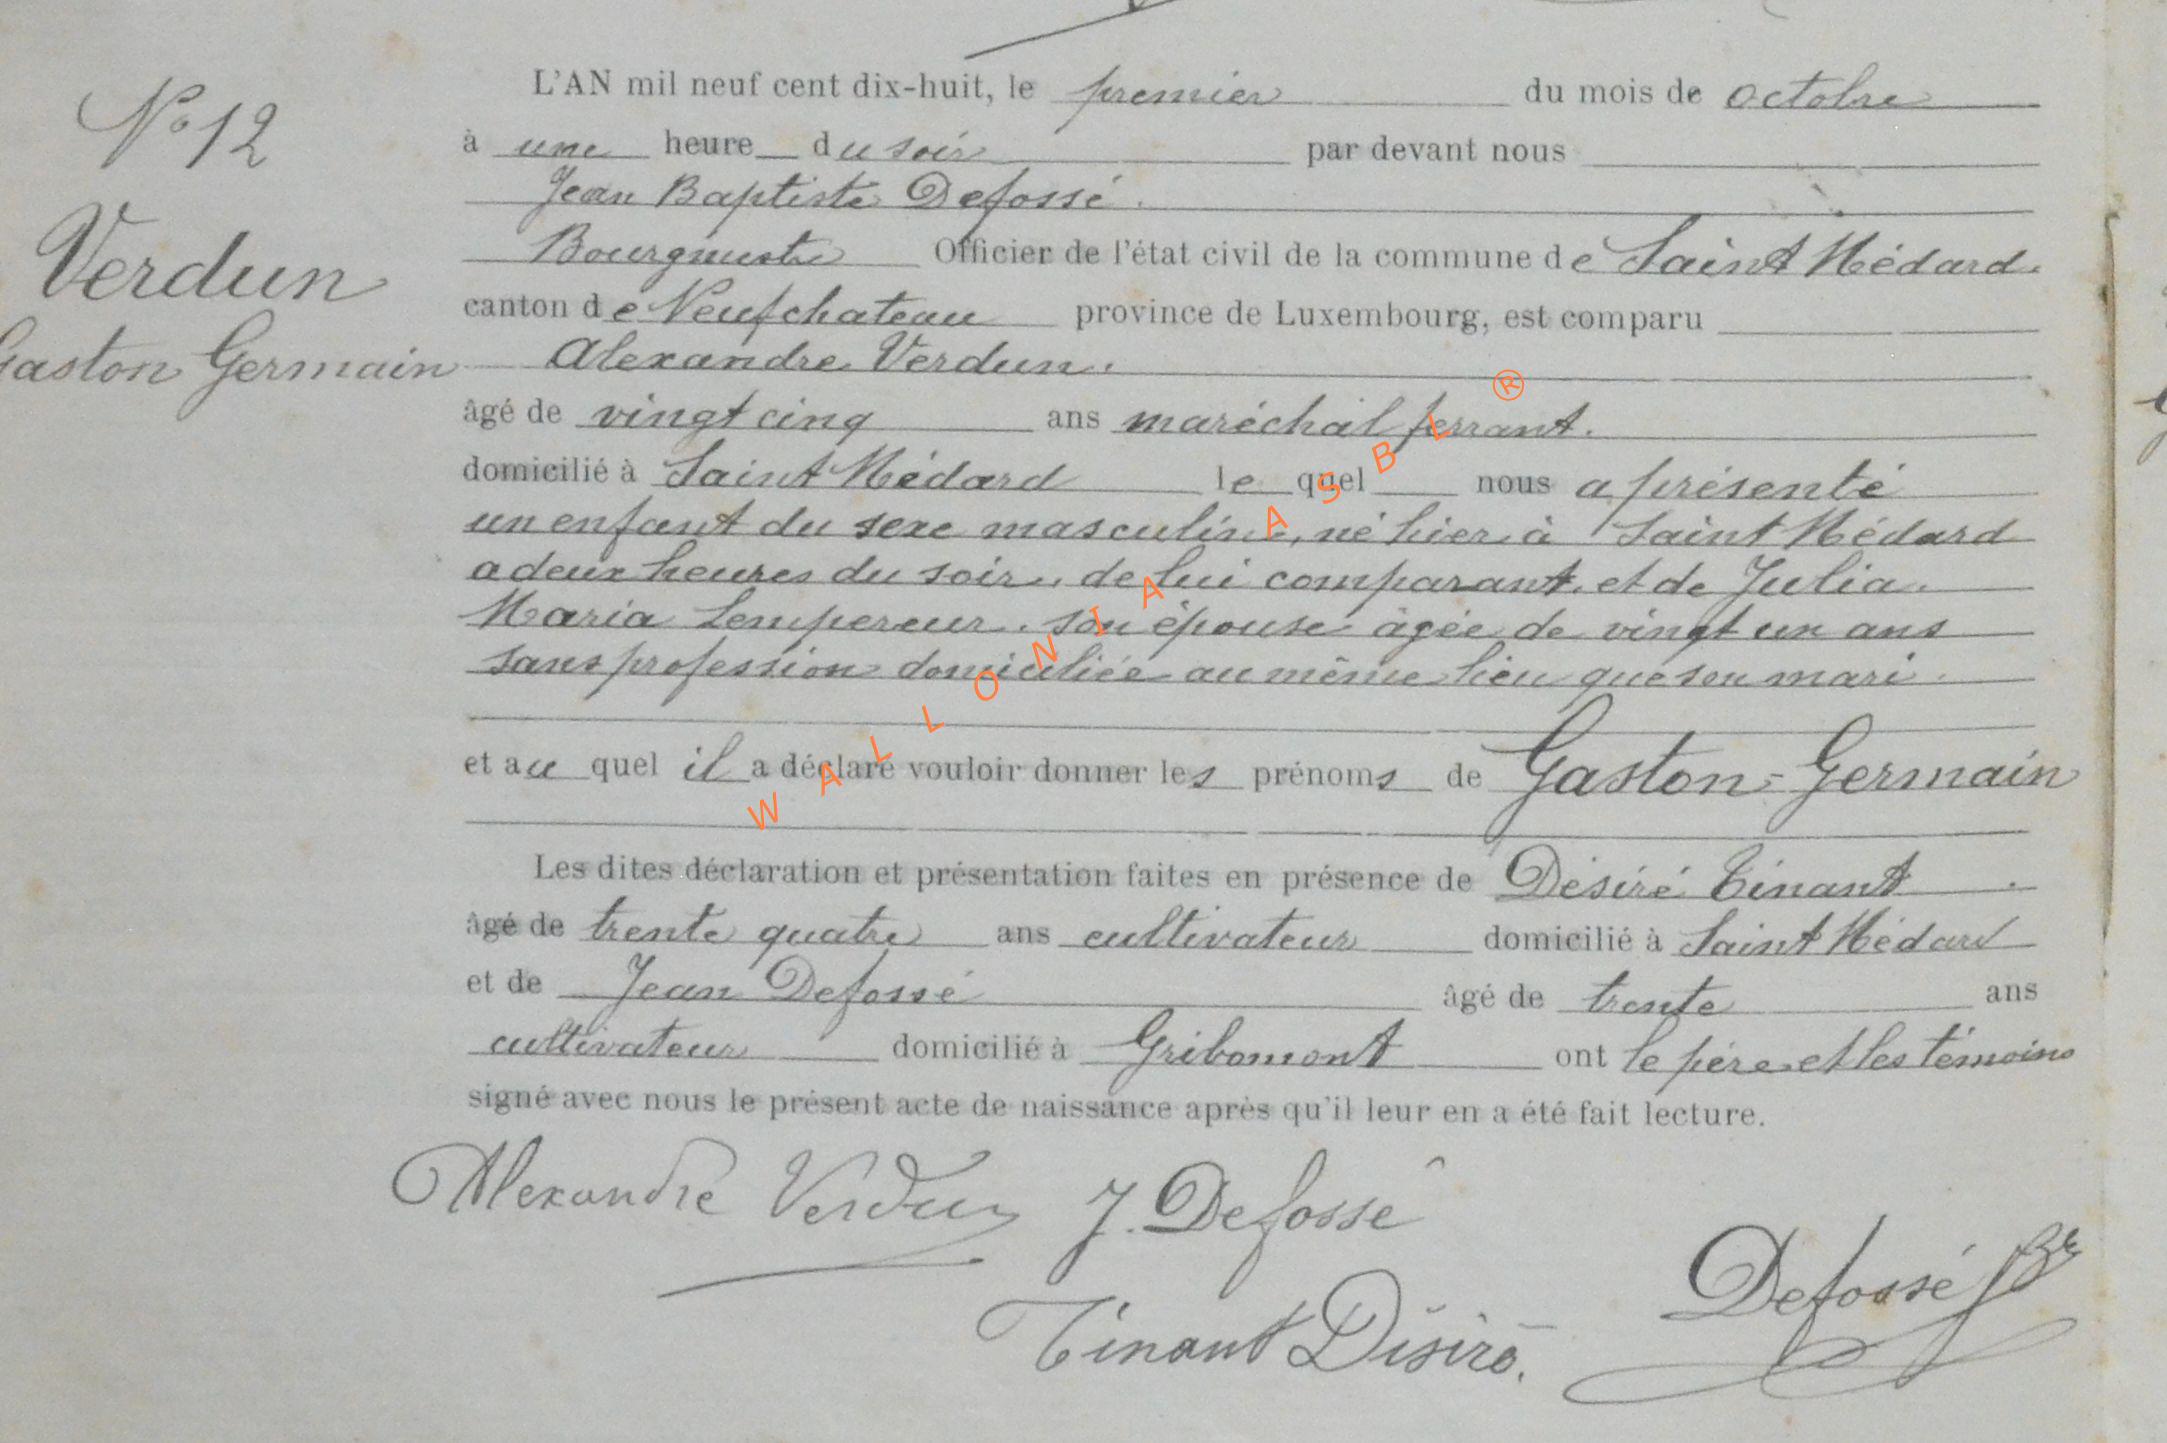 N° 12
Verdun
Gaston Germain
L'AN mil neuf cent dix-huit, le premier du mois de octobre
à une heure du soir par devant nous
Jean Baptiste Defossé.
Bourgmestre Officier de l'état civil de la commune de Saint Médard.
canton de Neufchateau province de Luxembourg, est comparu
Alexandre Verdun.
âgé de vingt cinq ans maréchal ferrant.
domicilié à Saint Médard le quel nous a présenté
un enfant du sexe masculin, né hier à Saint Médard
a deux heures du soir, de lui comparant et de Julia
Maria Lempereur. son épouse âgée de vingt un ans
sans profession domiciliée au même lieu que son mari.
et au quel il a déclaré vouloir donner les prénoms de Gaston-Germain
Les dites déclaration et présentation faites en présence de Désiré Tinant.
âgé de trente quatre ans cultivateur domicilié à Saint Médard
et de Jean Defossé âgé de trente ans
cultivateur domicilié à Gribomont ont le père et les témoins
signé avec nous le présent acte de naissance après qu'il leur en a été fait lecture.
Alexandre Verdun J. Defossé
Tinant Désiré. Defossé
WALLONIA ASBL ®